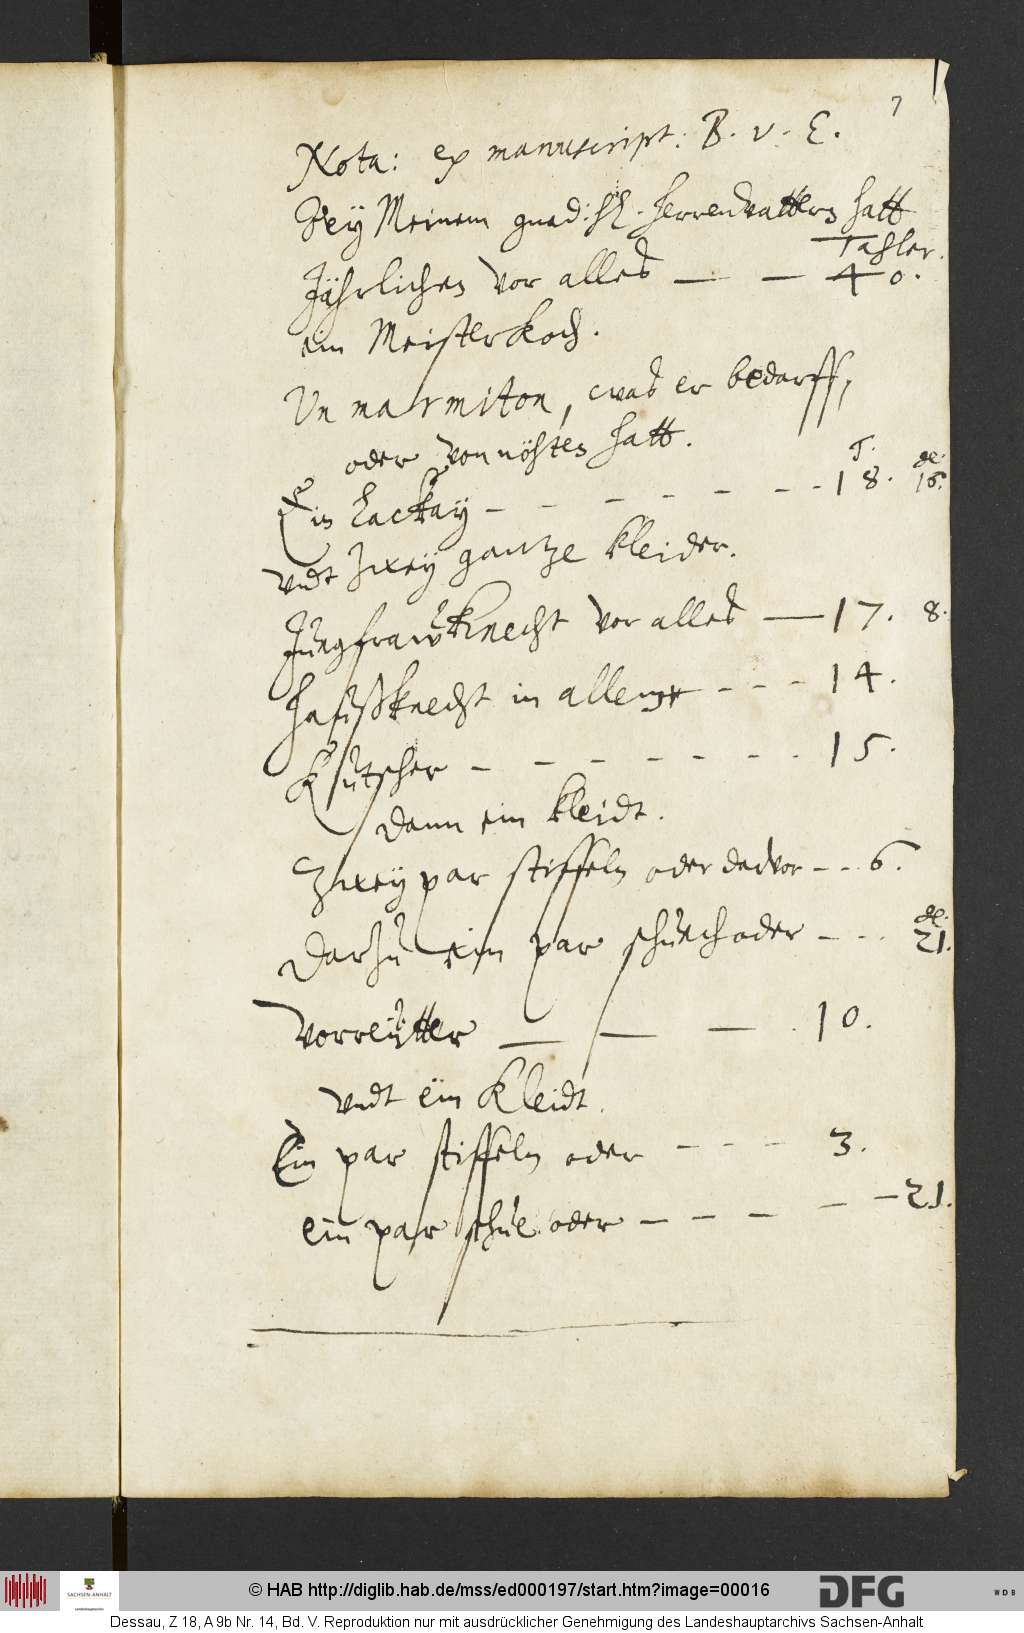 7
Nota: ex manuscript: B. v. E.
Bey Meinem gned: h. herrenvattern hatt
Tahler.
Jährlichen vor alles — — 40.
ein Meisterkoch.
Un marmiton, was er bedarff,
oder vonnöhten hatt.
T. gl:
Ein Lackay – – – – – – – 18. 16.
vndt zwey gantze kleider.
Jungfrawknecht vor alles — 17. 8.
haußknecht in allem – – – 14.
Kutscher – – – – – – – 15.
dann ein kleidt.
Zwey par stiffeln oder darvor – – 6.
gl:
Darzu ein par schuech oder – – – 21.
Vorreütter — — — . 10.
vndt ein Kleidt.
Ein par stiffeln oder – – – 3.
ein par schue oder – – – – – 21.
© HAB http://diglib.hab.de/mss/ed000197/start.htm?image=00016
SACHSEN-ANHALT
DFG
WDB
Dessau, Z 18, A 9b Nr. 14, Bd. V. Reproduktion nur mit ausdrücklicher Genehmigung des Landeshauptarchivs Sachsen-Anhalt